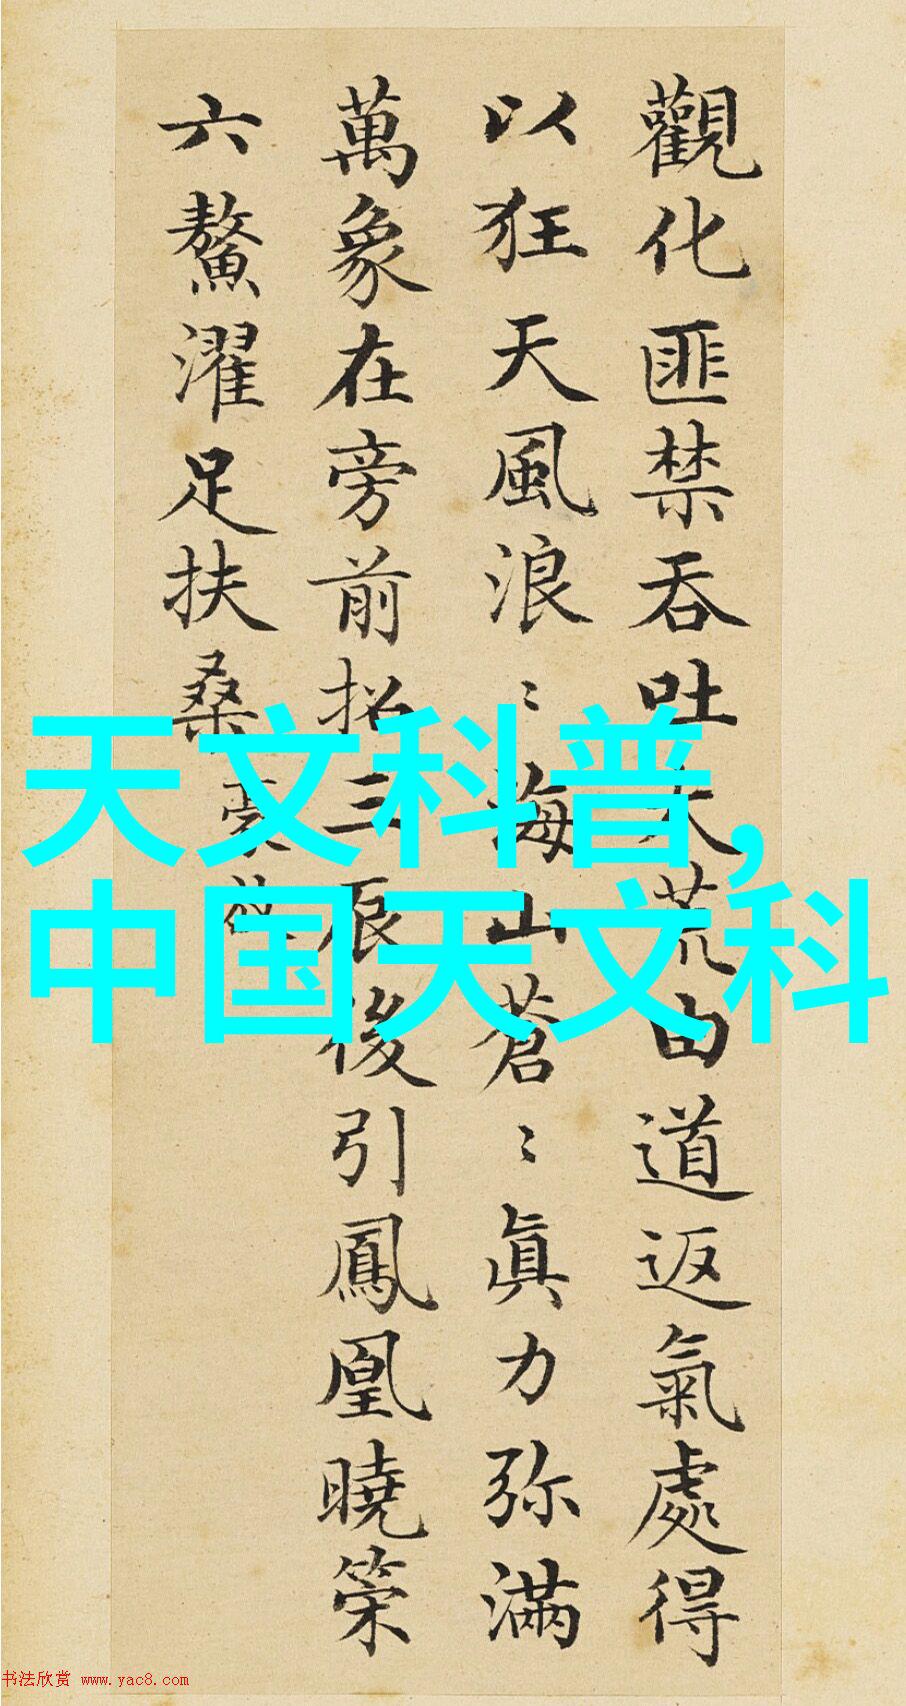 觀化匪禁吞吐大荒由道返氣處得
以狂天風浪〻海山蒼〻眞力弥滿
萬象在旁前招三辰後引鳳凰曉策
六鰲濯足扶桑
天文科普,
中国天文科
书法欣赏 www.yac8.com